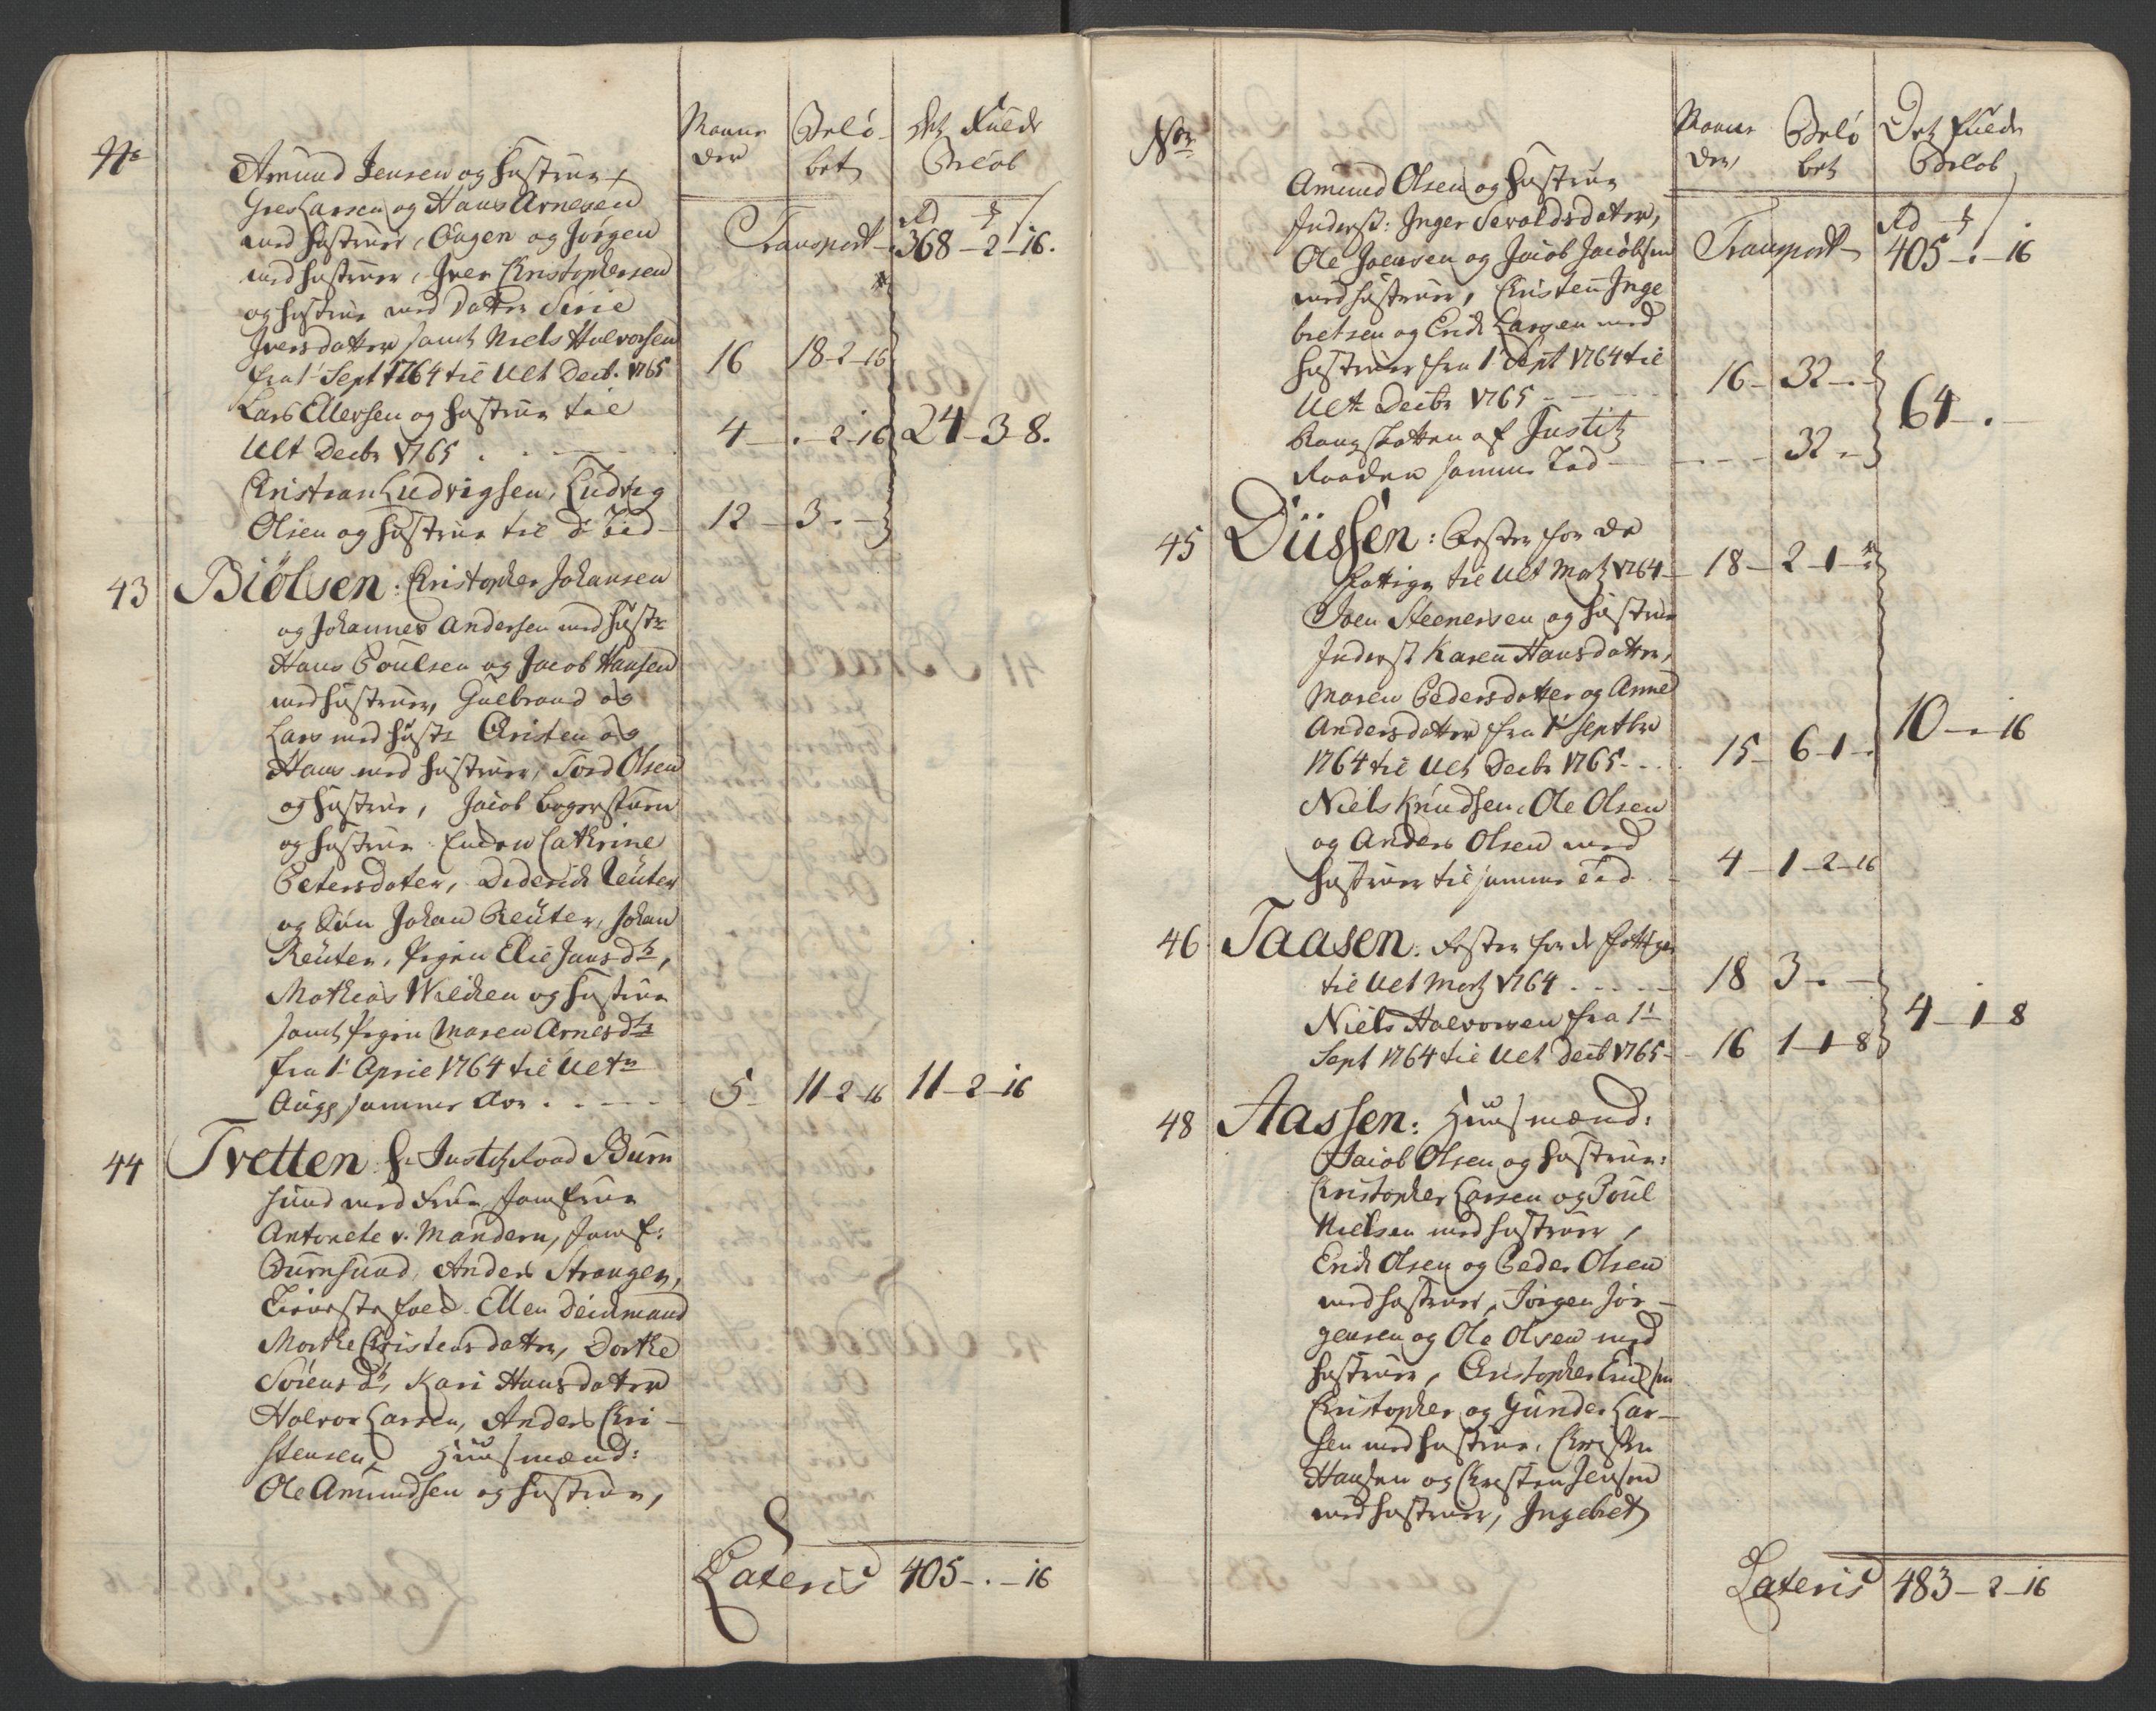 No
Maane
der
Belø-
bet
Det Fulde
Beløb
Amund Jensen og Hustrue,
Lars Larsen og Hans Arnesen
med Hustruer, Aagen og Jørgen
Transport - 368 - 2 - 16.
med Hustruer, Iver Christophersen
og Hustrue med Datter Sirie
Iversdatter samt Niels Halvorsen
fra 1t Sept 1764 til Ult Decb. 1765 16 18 - 2 - 16
Lars Ellevsen og Hustrue til
Ult Decbr 1765 . . 4 - . - 2 - 16 24 - 3 - 8.
Christian Ludvigsen, Ludvig
Olsen og Hustrue til do Tid - 12 - 3 . -
43 Biölsen: Christopher Johansen
og Johannes Andersen med Hustr
Hans Poulsen og Jacob Hansen
med Hustruer, Gulbrand og
Lars med Hustr Christen og
Hans med Hustruer, Tord Olsen
og Hustrue, Jacob
og Hustrue Cathrine
Petersdatter, Diderich Reuter
og Søn Johan Reuter, Johan
Reuter, Pigen Elie Jansdtr,
Mathias Wilcken og Hustrue
samt Pigen Maren Arnesdtr
fra 1t April 1764 til Ultn
Augs samme Aar . . 5 - 11 - 2 - 16 11 - 2 - 16
44 Tvetten: Hr Justitz Raad Burn
sund med Frue, Jomfrue
Antonete v. Mandern, Jomf:
Burnsund, Anders Strangen,
Ellen Deichmand
Morthe Christensdatter, Dorthe
Sörensdr, Kari Hansdatter
Halvor Larsen, Anders Chri-
stensen, Huusmænd:
Ole Amundsen og Hustrue,
Lateris 405 - . - 16
Nor
Maane
der
Belø
bet
Det fulde
Beløb
Amund Olsen og Hustrue
Inderst: Inger Sevoldsdatter,
Ole Joensen og Jacob Jacobsen
Transport - 405 - . - 16
med Hustruer, Christen Inge
bretsen og Erich Larsen med
Hustruer fra 1t Sept 1764 til
Ult Decbr 1765 - - - 16 - 32 - . -
Rangskatten af Justitz
Raaden samme Tid - - - 32 . - 64 - . -
45 Düssen: Rester for de
fattige til Ult Martz 1764 - 18 - 2 - 1 -
Joen Steenersen og Hustrue
Inderst Karen Hansdatter,
Maren Pedersdatter og Anne
Andersdatter fra 1t Septbr
1764 til Ult Decbr 1765 - . . 15 - 6 - 1 - . 10 - . - 16
Niels Knudsen, Ole Olsen
og Anders Olsen med
Hustruer til samme Tid . - 4 - 1 - 2 - 16
46 Taasen: Rester for de fattige
til Ult Martz 1764 . . . . 18 3 - . -
Niels Halvorsen fra 1t
Sept 1764 til Ult Decb 1765 - 16 1 - 1 - 8 4 - 1 - 8
48 Aassen: Huusmænd:
Jacob Olsen og Hustrue:
Christopher Larsen og Poul
Nielsen med Hustruer,
Erich Olsen og Peder Olsen
med Hustruer, Jörgen Jör-
gensen og Ole Olsen med
Hustruer, Christopher Erichsen
Christopher og Gunder Lar-
sen med Hustrue, Christen
Hansen og Christen Jensen
med Hustruer, Ingebret
Lateris 483 - 2 - 16